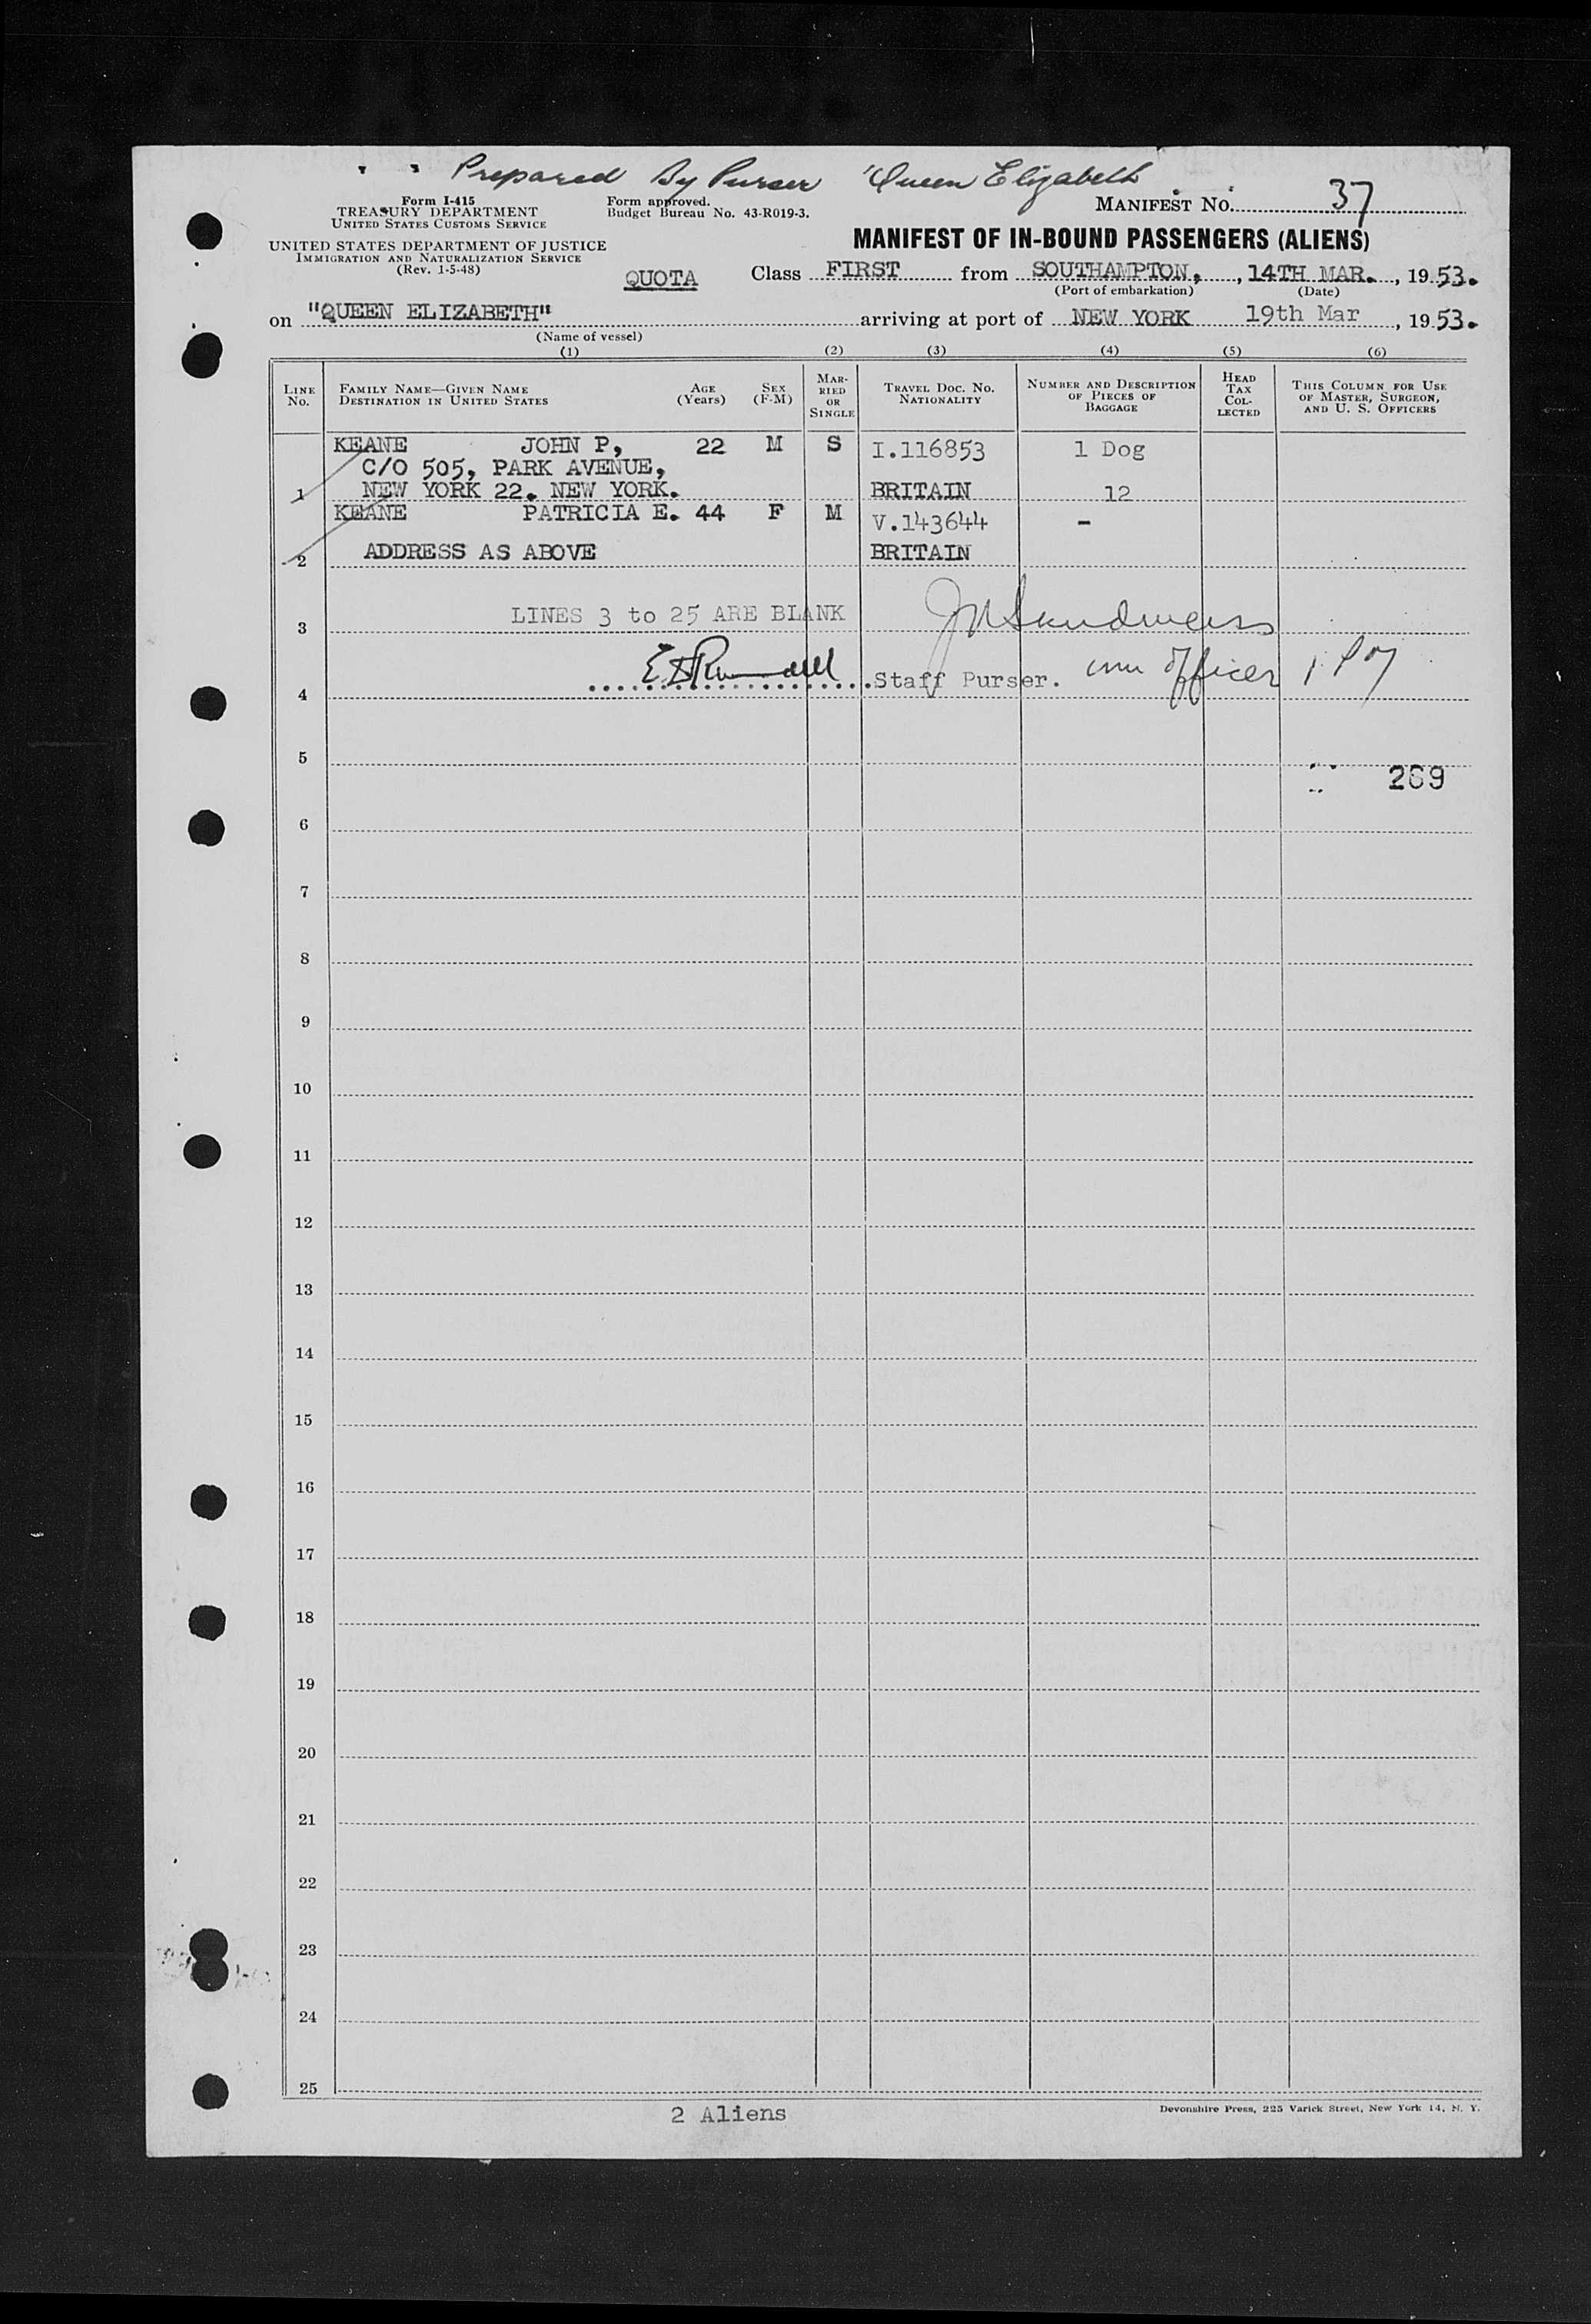 Prepared By Purser "Queen Elizabeth
Form I-415
TREASURY DEPARTMENT
UNITED STATES CUSTOMS SERVICE
Form approved.
Budget Bureau No. 43-R019-3.
MANIFEST NO. 37
UNITED STATES DEPARTMENT OF JUSTICE
IMMIGRATION AND NATURALIZATION SERVICE
(Rev. 1-5-48)
MANIFEST OF IN-BOUND PASSENGERS (ALIENS)
QUOTA Class FIRST from SOUTHAMPTON, , 14TH MAR. , 19 53.
(Port of embarkation) (Date)
on "QUEEN ELIZABETH" arriving at port of NEW YORK 19th Mar , 19 53.
(Name of vessel)
(1) (2) (3) (4) (5) (6)
LINE No. FAMILY NAME—GIVEN NAME DESTINATION IN UNITED STATES AGE (Years) SEX (F-M) MAR-RIED OR SINGLE TRAVEL DOC. NO. NATIONALITY NUMBER AND DESCRIPTION OF PIECES OF BAGGAGE HEAD TAX COL-LECTED THIS COLUMN FOR USE OF MASTER, SURGEON, AND U. S. OFFICERS
KEANE JOHN P, 22 M S I.116853 1 Dog
C/O 505, PARK AVENUE,
1 NEW YORK 22. NEW YORK. BRITAIN 12
KEANE PATRICIA E. 44 F M V.143644 -
2 ADDRESS AS ABOVE BRITAIN
3 LINES 3 to 25 ARE BLANK
4 Staff Purser. Imm Officer
5
269
6
7
8
9
10
11
12
13
14
15
16
17
18
19
20
21
22
23
24
25
2 Aliens
Devonshire Press, 225 Varick Street, New York 14, N. Y.